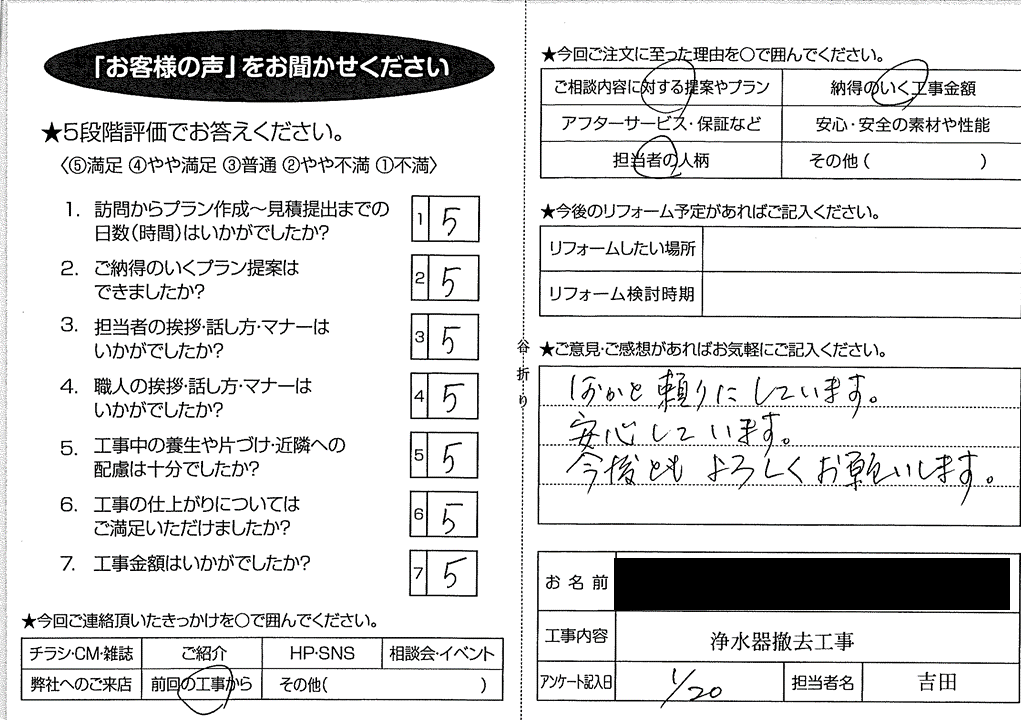 「お客様の声」をお聞かせください
★5段階評価でお答えください。
〈⑤満足 ④やや満足 ③普通 ②やや不満 ①不満〉
1. 訪問からプラン作成～見積提出までの
日数(時間)はいかがでしたか?
1 5
2. ご納得のいくプラン提案は
できましたか?
2 5
3. 担当者の挨拶・話し方・マナーは
いかがでしたか?
3 5
4. 職人の挨拶・話し方・マナーは
いかがでしたか?
4 5
5. 工事中の養生や片づけ・近隣への
配慮は十分でしたか?
5 5
6. 工事の仕上がりについては
ご満足いただけましたか?
6 5
7. 工事金額はいかがでしたか?
7 5
★今回ご連絡頂いたきっかけを○で囲んでください。
チラシ・CM・雑誌 ご紹介 HP・SNS 相談会・イベント
弊社へのご来店 前回の工事から その他( )
谷折り
★今回ご注文に至った理由を○で囲んでください。
ご相談内容に対する提案やプラン 納得のいく工事金額
アフターサービス・保証など 安心・安全の素材や性能
担当者の人柄 その他( )
★今後のリフォーム予定があればご記入ください。
リフォームしたい場所
リフォーム検討時期
★ご意見・ご感想があればお気軽にご記入ください。
頼りにしています。
安心しています。
今後ともよろしくお願いします。
お名前
工事内容 浄水器撤去工事
アンケート記入日 1/20 担当者名 吉田